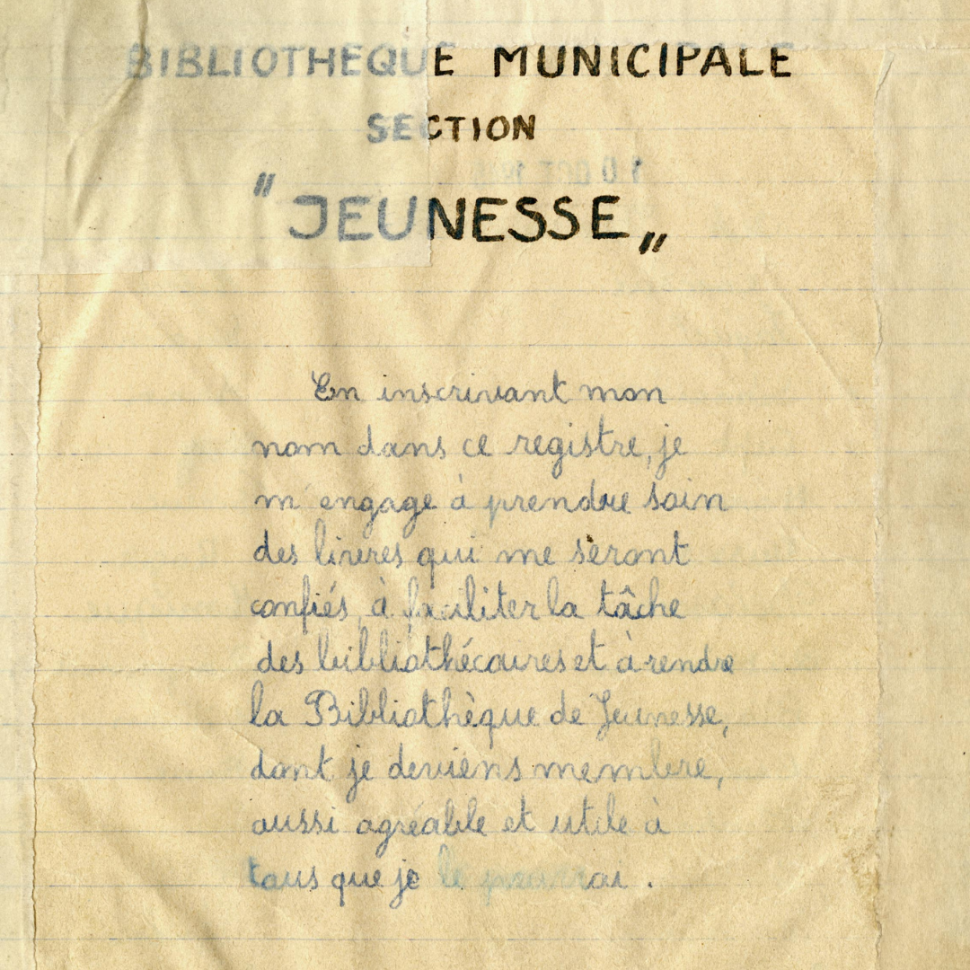 BIBLIOTHEQUE MUNICIPALE
SECTION
"JEUNESSE„
En inscrivant mon
nom dans ce registre, je
m'engage à prendre soin
des livres qui me seront
confiés, à faciliter la tâche
des bibliothécaires et à rendre
la Bibliothèque de Jeunesse,
dont je deviens membre,
aussi agréable et utile à
tous que je le pourrai.